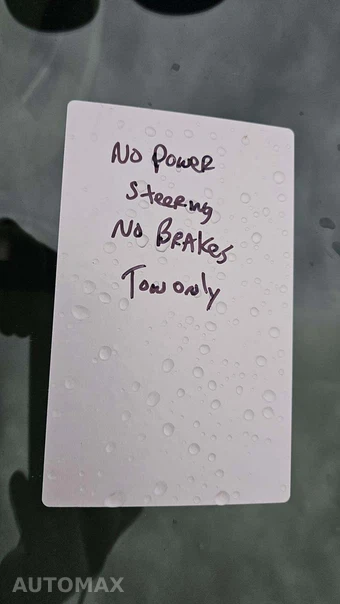 No Power
Steering
No Brakes
Tow only
AUTOMAX